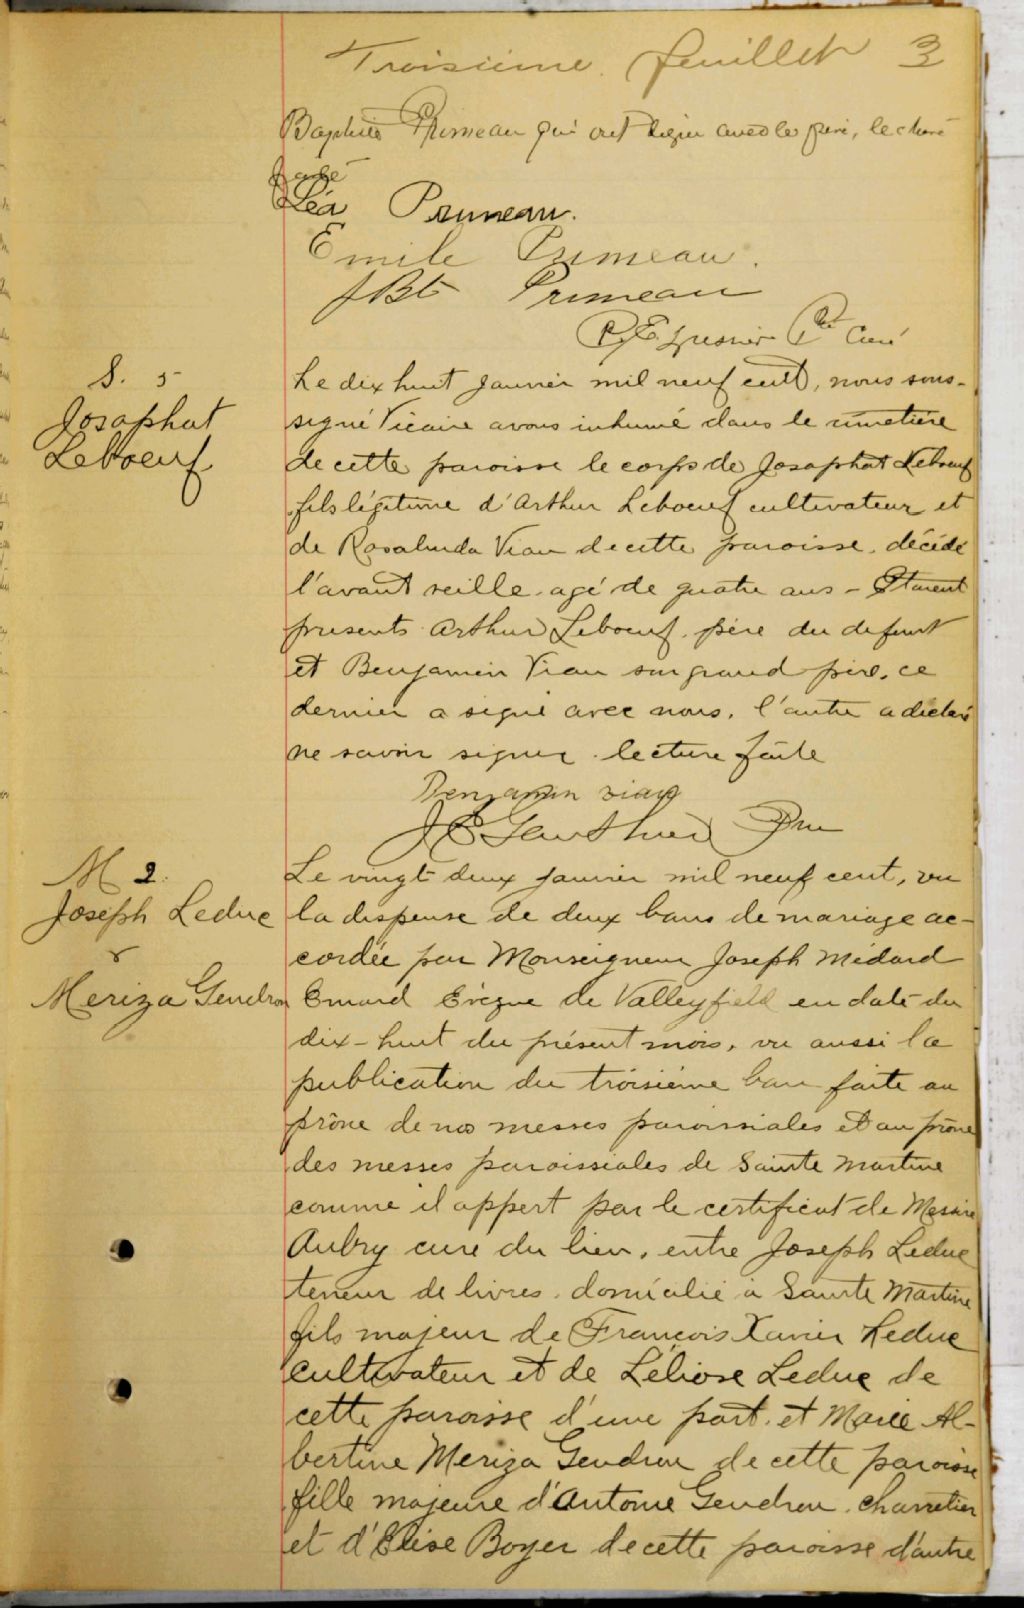 Troisième feuillet 3
Baptiste Primeau qui ont signé avec le père, lecture
faite
Léa Primeau.
Emile Primeau.
JBte Primeau
Ptre Curé
S. 5
Josaphat
Leboeuf
Le dix huit Janvier mil neuf cent, nous sous-
signé Vicaire avons inhumé dans le cimetière
de cette paroisse le corps de Josaphat Leboeuf
fils légitime d'Arthur Leboeuf cultivateur et
de Rosalinda Viau de cette paroisse, décédé
l'avant veille, agé de quatre ans - Etaient
présents Arthur Leboeuf, père du defunt
et Benjamin Viau son grand père, ce
dernier a signé avec nous, l'autre a déclaré
ne savoir signer. lecture faite
Benjamin viau
J E Gauthier Ptre
M 2.
Joseph Leduc
&
Meriza Gendron
Le vingt deux janvier mil neuf cent, vu
la dispense de deux bans de mariage ac-
cordée par Monseigneur Joseph Médard
Emard Evêque de Valleyfield en date du
dix-huit du présent mois, vu aussi la
publication du troisième ban faite au
prône de nos messes paroissiales et au prône
des messes paroissiales de Sainte Martine
comme il appert par le certificat de Messire
Aubry curé du lieu, entre Joseph Leduc
teneur de livres, domicilié à Sainte Martine
fils majeur de François Xavier Leduc
cultivateur et de Léliose Leduc de
cette paroisse d'une part, et Marie Al-
bertine Meriza Gendron de cette paroisse
fille majeure d'Antoine Gendron, charretier
et d'Elise Boyer de cette paroisse d'autre